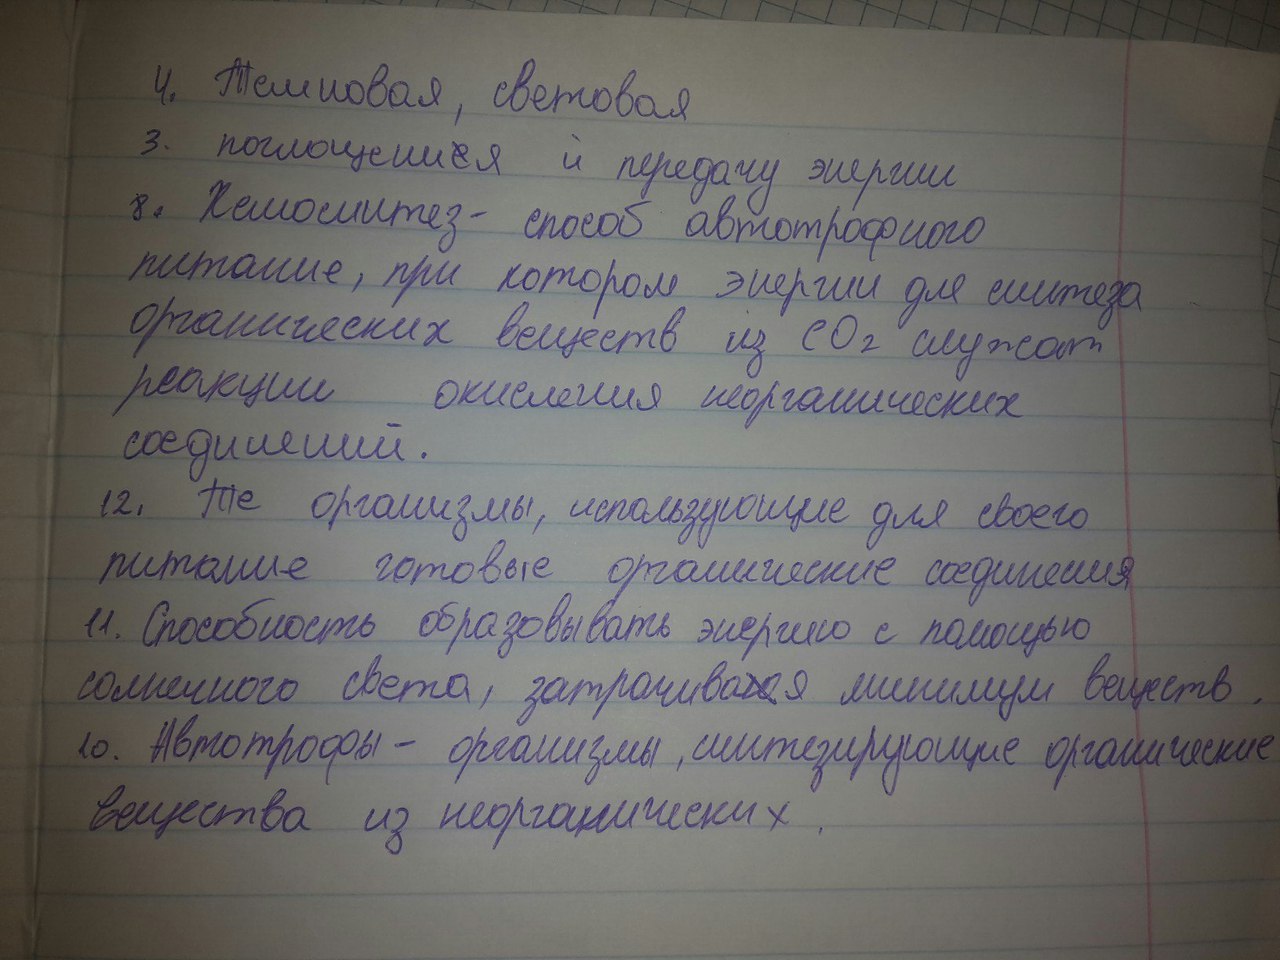 4. Темновая, световая
3. поглощения и передачу энергии
8. Хемосинтез - способ автотрофного
питание, при котором энергии для синтеза
органических веществ из CO2 служат
реакции окисления неорганических
соединений.
12. Те организмы, использующие для своего
питание готовые органические соединения
11. Способность образовывать энергию с помощью
солнечного света, затрачивая минимум веществ.
10. Автотрофы - организмы, синтезирующие органические
вещества из неорганических.